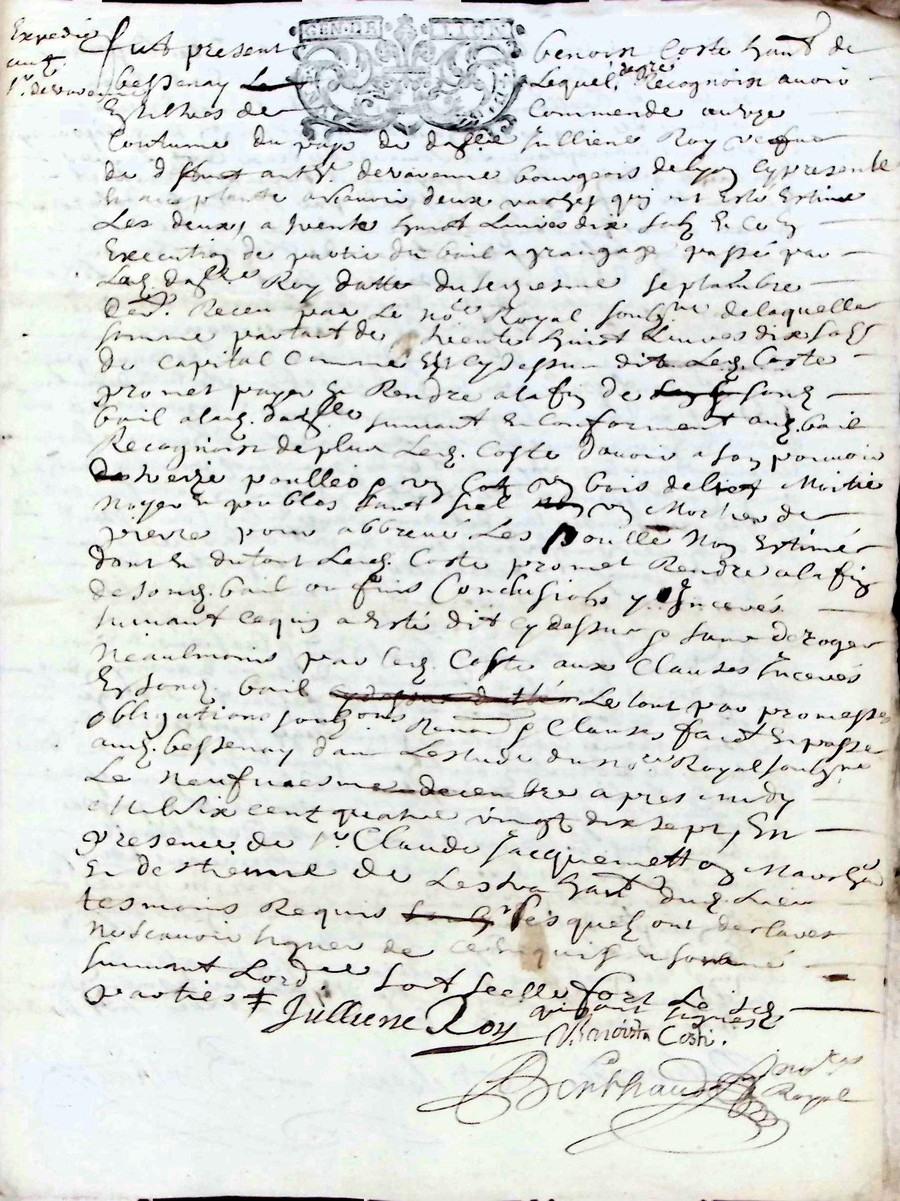 Expedié
aud.
Sr. deravenne
GEN. DE LION
fut present benoist Coste hant de
bessenay Lequel de gré Recognoist avoir
Et tenir de Commende au vze
Coutume du pays de dalle. Julliene Roy vefve
de d funct anth. deravenne bourgeois de Lyon cy presente
et acceptante a scavoir deux vaches qui ont esté Estimé
Les deux, a trente huict Livres dix solz Et ce En
Execution de partie du bail a grangage passé par
Lad. dalle Roy datte du seziesme septambre
der. Receu par Le nore. Royal soubsne. de laquelle
somme partant de trente huict Livres dix solz
de capital Comme Est cy dessus dit Led. Coste
promet payer Et Rendre a la fin de sond.
bail a lad. dalle suivant Et Conforment aud. bail
Recognoist de plus Led. Coste d'avoir a son pouvoir
treize poulles un Coq un bois de lict Moitié
Noyer Et peubles sans ciel un Mortier de
pierre pour abbreuve Les poulle Non Estimés
dont Et du tout Led. Coste promet Rendre a la fin
de sond. bail ou fins Conclusions y Inserés
suivant ce qui a Esté dit cy dessus sans deroger
Neaulmoins par led. Coste aux Clauses Inserés
Et sond. bail Le tout par promesses
obligations soubzons Renon. Clauses faict Et passé
aud. bessenay dans Lestude du nore. Royal soubsne
Le Neufviesme decembre apres midy
Mil six cent quatre vingt dix sept, En
presence de Sr. Claude Jacquemetton Marchd
Et d'estienne de Lestra hant dud. Lieu
tesmoins Requis Lesquelz ont declarer
ne scavoir signer de ce Enquis Et sommé
suivant Lord. soit scellé fors Les
parties qui ont signés
Jullienne Roy Benoista Coste.
Berthaud nore. Royal